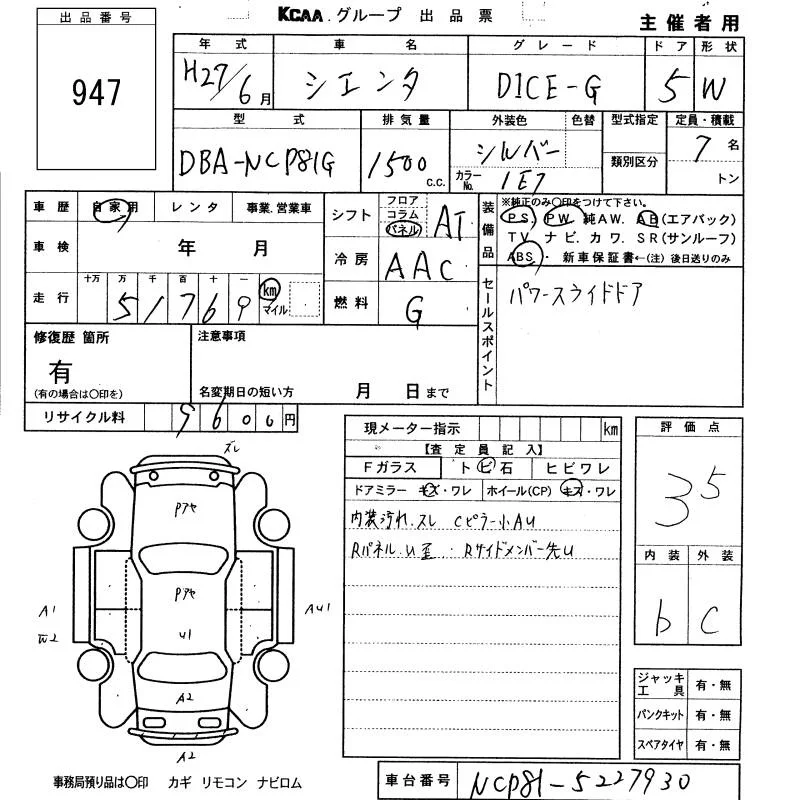 KCAA.グループ 出品票
主催者用
出品番号
947
年式 車名 グレード ドア 形状
H27/6月 シエンタ DICE-G 5 W
型式 排気量 外装色 色替 型式指定 定員・積載
DBA-NCP81G 1500 c.c. シルバー 類別区分 7名
カラーNo. 1E7 トン
車歴 自家用 レンタ 事業.営業車
車検 年 月
走行 十万 万 千 百 十 一
51769 km マイル
シフト フロア コラム パネル AT
冷房 AAC
燃料 G
装備品 ※純正のみ〇印をつけて下さい。
PS PW 純AW. AB(エアバック)
TV ナビ. カワ. SR(サンルーフ)
ABS・ 新車保証書←(注)後日送りのみ
セールスポイント
パワースライドドア
修復歴 箇所
有
(有の場合は〇印を)
注意事項
名変期日の短い方 月 日まで
リサイクル料 9600円
現メーター指示 km
【査定員記入】
Fガラス トビ石 ヒビワレ
ドアミラー キズ・ワレ ホイール(CP) キズ・ワレ
内装汚れ.スレ Cピラー小AU
Rパネル.U歪・Rサイドメンバー先U
評価点
35
内装 外装
b C
ズレ
Pアヤ
Pアヤ
U1
A1
W2
AU1
A2
A2
ジャッキ工具 有・無
パンクキット 有・無
スペアタイヤ 有・無
事務局預り品は〇印 カギ リモコン ナビロム
車台番号 NCP81-5227930